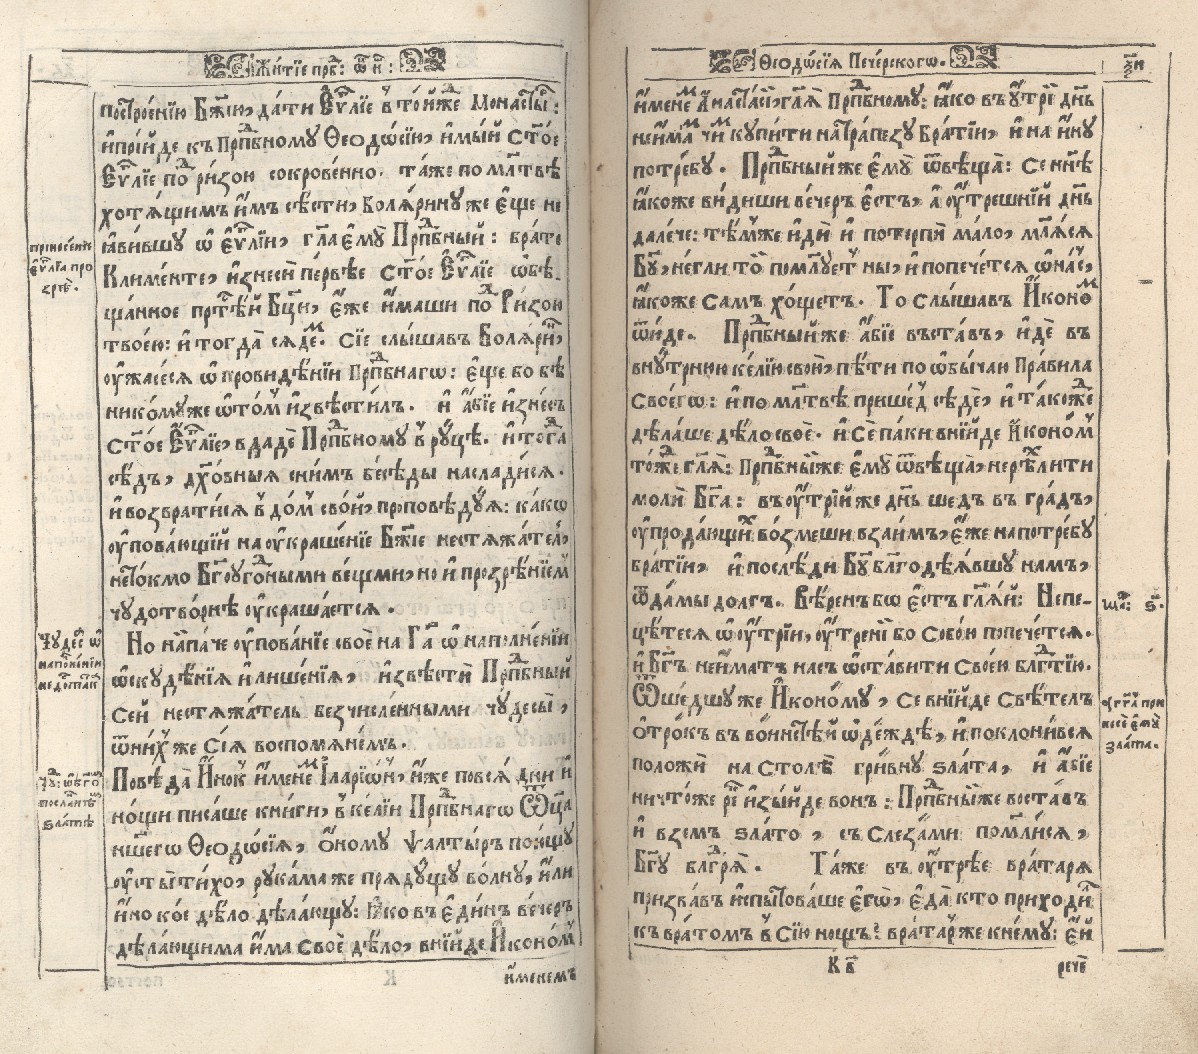 Жи́тїе прп҇: ѿц҃:
постро́енїю Бж҃їю, да́ти Єѵ҃лїе в̾ то́йже Монасты́:
и҆ прїи́де къ Прп҇до́бному Ѳеодо́сїю, и҆мы́й Ст҃о́е
Єѵ҃лїе под̾ ри́зою сокрове́нно. та́же по мл҃твѣ
хотѧ́щимъ и҆̀мъ сѣ́сти, Болѧ́ринуже є҆ще не
ꙗ҆ви́вшу ѡ҆ єѵ҃лїи, гл҃а є҆му̀ Прп҇до́бный: бра́те
Кли́менте, и҆знесѝ пе́рвѣе Ст҃о́е Єѵ҃лїе ѡ҆бѣ-
ща́нное прст҃ѣ́й Бц҃и, є҆́же и҆́маши под̾ Ри́зою
твое́ю: и҆ тогда̀ сѧ́де́м. Сїе слы́шавъ Болѧ́ри́н,
оу҆жасе́сѧ ѡ҆ провидѣ́нїи Прп҇до́бнагѡ: є҆ще́ бо бѣ
никому́же ѡ҆ то́м и҆звѣсти́лъ. и҆ а҆́бїе и҆знесъ
Ст҃о́е Єѵ҃лїе, вдадѐ Прп҇до́бному в̾ ру́цѣ. и҆ тогда̀
сѣ́дъ, дх҃о́вныѧ сни́мъ бесѣ́ды наслади́сѧ.
и҆ возврати́сѧ в̾ до́м сво́й, проповѣ́дуѧ: ка́кѡ
оу҆пова́ющїй на оу҆краше́нїе Бж҃їе нестѧжа́тел,
нето́кмо Бг҃оуго́дными ве́щми, но и҆ прозрѣ́нїем
чудотво́рнѣ оу҆краша́етсѧ.
Но наипа́че оу҆пова́нїе своѐ на Гд҇а ѡ҆ наполне́нїи
ѡ҆скудѣ́нїѧ и҆ лише́нїѧ, и҆звѣстѝ Прп҇до́бный
Сей нестѧжа́тель безчи́сленными чудесы̀,
ѿ ни́хже Сїѧ̀ воспомѧне́мъ.
Повѣ́да И҆́нок и҆менем І҆ларїѡ́н, и҆́же по всѧ̀ дни и҆
но́щи писа́ше кни́ги, в̾ ке́лїи Прп҇до́бнагѡ Ѿц҃а
на́шегѡ Ѳеодо́сїѧ, ѻ҆́ному Ѱалты́ръ пою́щу
оу҆сты̀ ти́хо, рука́ма же прѧду́щу во́лну, и҆лѝ
и҆́но ко́е дѣ́ло дѣ́лающу: Ꙗ҆́ко въ є҆ди́нъ ве́черъ
дѣ́лающима и҆́ма своѐ дѣ́ло, вни́йде И҆коно́м
и҆менемъ
принесе́нїе
є҆ѵ҃лїѧ про
зрѣ́.
Чудес̾ ѡ҆
наполне́нїи
недоста́к
Чу́: ѡ҆ Бг҃о
посла́нѣм
ѕла́тѣ
Ѳеодѡ́сїѧ Пече́рскогѡ.
и҆́менем А҆наста́сїй, гл҃ѧ Прп҇до́бному: ꙗ҆́ко въ оу҆трїй дн҃ь
не и҆́мам чи́м купи́ти на тра́пезу Бра́тїи, и҆ на и҆́ну
потре́бу. Прп҇до́бныйже є҆му̀ ѿвѣща̀: Се нн҃ѣ
ꙗ҆́коже ви́диши ве́черъ є҆́стъ, а҆ оу҆́трешнїй дн҃ь
дале́че: тѣ́мже и҆дѝ и҆ потерпѝ ма́ло, молѧ́сѧ
Бг҃у, не́гли то́й поми́луетъ ны̀, и҆ попече́тсѧ ѡ҆ на́с,
ꙗ҆́коже Самъ хо́щетъ. То слы́шавъ И҆коно́м
ѿи́де. Прп҇до́бныйже а҆́бїе въста́въ, и҆́де въ
вну́трнюю ке́лїю свою̀, пѣ́ти по ѡ҆бы́чаю Пра́вила
Своегѡ̀: и҆ по мл҃твѣ прише́д сѣ́де, и҆ та́кожде
дѣ́лаше дѣ́ло своѐ. и҆ Сѐ па́ки вни́йде И҆коно́м
то́жде гл҃ѧ: Прп҇до́бныйже є҆му̀ ѿвѣща̀, нерѣ́хли ти
молѝ Бг҃а: въ оу҆́трїй же дн҃ь ше́дъ въ гра́дъ,
оу҆ продаю́щих во́змеши взаи́мъ, є҆́же на потре́бу
бра́тїи, и҆ послѣди Бг҃у блг҃одѣ́ѧвшу намъ,
ѿда́мы долгъ. Вѣ́ренъ бо є҆́стъ гл҃ѧй: Непе-
цѣ́тесѧ ѡ҆ оу҆́трїи, оу҆́тренї бо Собо́ю попече́тсѧ.
и҆ Бг҃ъ не и҆́матъ на́съ ѡ҆ста́вити Свое́ю блг҃дтїю.
Ѿше́дшу же И҆коно́му, се вни́йде Свѣ́телъ
ѻ҆́трокъ въ во́инстей ѡ҆де́ждѣ, и҆ поклони́всѧ
положѝ на Столѣ̀ гри́вну ѕла́та, и҆ а҆́бїе
ничто́же ре́к и҆зы́йде во́нъ: Прп҇до́бныйже воста́въ
и҆ взе́мъ ѕла́то, съ Слеза́ми помоли́сѧ,
Бг҃у благодарѧ̀. Та́же въ оу҆́трѣе врата́рѧ
призва́въ и҆спы́товаше є҆го̀, є҆да̀ кто приходи́л
къ врато́мъ в̾ Сїю но́щъ? врата́рже к нему̀: є҆й
К в҃
рече́
ща҃: ѕ҃.
а҆гг҃л при
несѐ є҆му̀
ѕла́та.